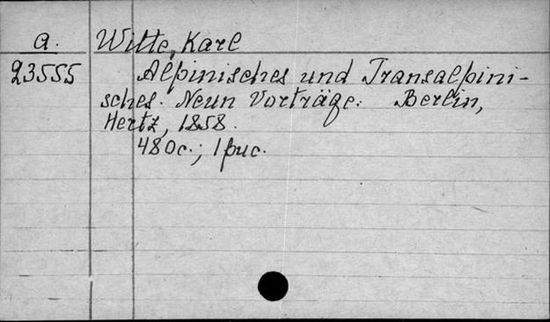 a. Witte, Karl
23555 Alpinisches und Transalpini-
sches. Neun Vorträge. Berlin,
Hertz, 1858.
480 c.; 1 рис.